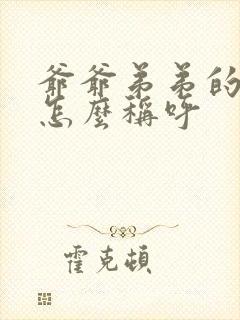 爺爺弟弟的
怎麼稱呼
霍克頓